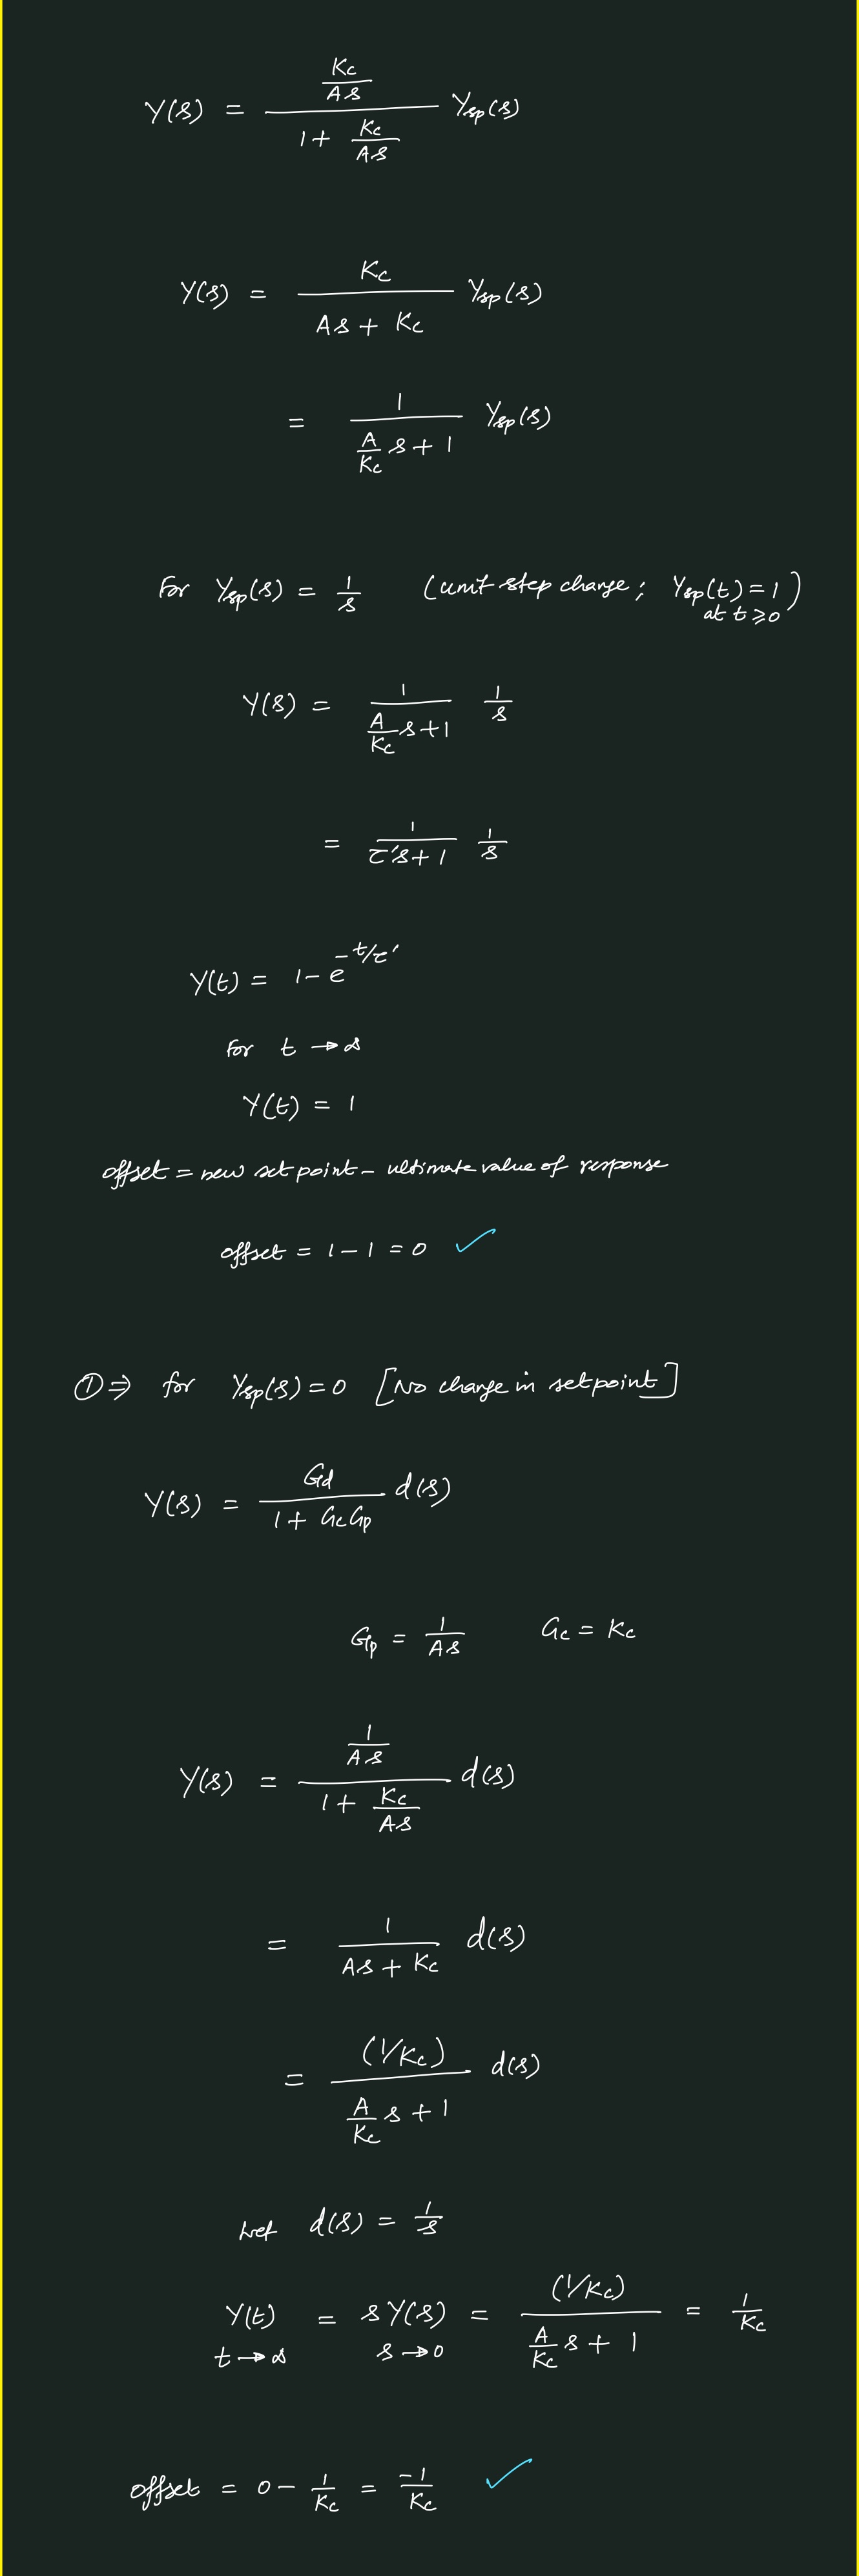 Y(s) = (Kc/As) / (1 + Kc/As) Ysp(s)
Y(s) = Kc / (As + Kc) Ysp(s)
= 1 / (A/Kc s + 1) Ysp(s)
For Ysp(s) = 1/s (unit step change; Ysp(t) = 1 at t ≥ 0)
Y(s) = 1 / (A/Kc s + 1) 1/s
= 1 / (τ's + 1) 1/s
Y(t) = 1 - e^(-t/τ')
For t → ∞
Y(t) = 1
offset = new set point - ultimate value of response
offset = 1 - 1 = 0 ✓
① ⇒ for Ysp(s) = 0 [No change in setpoint]
Y(s) = Gd / (1 + GcGp) d(s)
Gp = 1/As Gc = Kc
Y(s) = (1/As) / (1 + Kc/As) d(s)
= 1 / (As + Kc) d(s)
= (1/Kc) / (A/Kc s + 1) d(s)
Let d(s) = 1/s
Y(t) = sY(s) = (1/Kc) / (A/Kc s + 1) = 1/Kc
t → ∞ s → 0
offset = 0 - 1/Kc = -1/Kc ✓